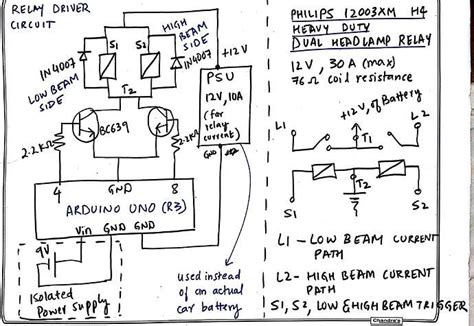 RELAY DRIVER
CIRCUIT
HIGH
BEAM
SIDE
S1
S2
IN4007
IN4007
LOW BEAM
SIDE
T2
+12V
PSU
12V, 10A
(for
relay
current)
GND
BC639
2.2KΩ
2.2KΩ
4
GND
8
ARDUINO UNO (R3)
Vin GND GND
9V
Isolated
Power Supply
used instead
of an actual
car battery
PHILIPS 12003XM H4
HEAVY DUTY
DUAL HEADLAMP RELAY
12V, 30A (max)
76Ω coil resistance
+12V, of Battery
L1
L2
T1
T2
S1
S2
L1 - LOW BEAM CURRENT
PATH
L2 - HIGH BEAM CURRENT
PATH
S1, S2, LOW & HIGH BEAM TRIGGER
Chandra's